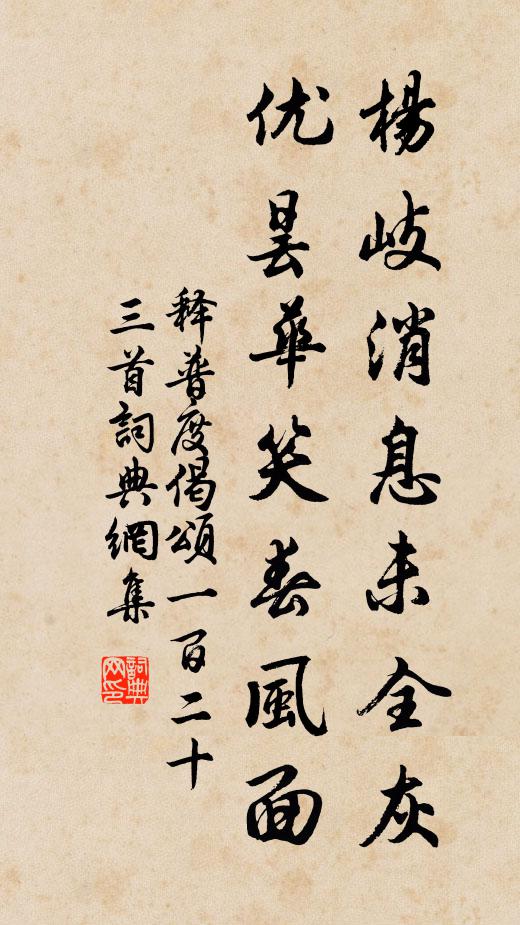 楊岐消息未全灰
优昙華笑春風面
释普度偈頌一百二十
三首詞典網集
詞典网印